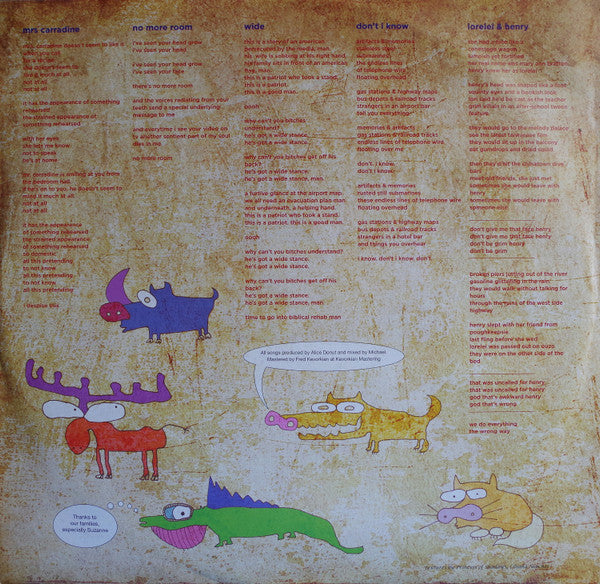 mrs carradine
mrs. carradine doesn't seem to like it
not at all
not at all
it has the appearance of something
rehearsed
the strained appearance of
something rehearsed
with her eyes
she lets me know
not to speak
he's at home
mr. carradine is smiling at you from
the bedroom hall
if he's on to you, he doesn't seem to
mind it much at all
not at all
not at all
it has the appearance
of something rehearsed
the strained appearance
of something rehearsed
so domestic
all this pretending
to not know
all this pretending
to not know
all this pretending
no more room
i've seen your head grow
i've seen your head
i've seen your head grow
i've seen your face
there's no more room
and the voices radiating from your
teeth send a special underlying
message to me
and everytime i see your video on
tv another sentient part of my soul
dies in me
no more room
wide
this is a story of an american
persecuted by the media, man
his wife is sobbing at his right hand,
his family sits in front of an american
flag, man.
this is a patriot who took a stand.
this is a good man.
oooh
why can't you bitches
understand?
he's got a wide stance.
he's got a wide stance, man.
why can't you bitches get off his
back?
he's got a wide stance.
he's got a wide stance, man.
a furtive glance at the airport, map.
we all need an evacuation plan man
and underneath, a helping hand.
this is a patriot who took a stand.
this is a patriot. this is a good man.
oooh
why can't you bitches understand?
he's got a wide stance.
he's got a wide stance.
why can't you bitches get off his
back?
he's got a wide stance.
he's got a wide stance, man
time to go into biblical rehab man
don't i know
stainless steel
submarines
the endless lines
of telephone wire
floating overhead
gas stations & highway maps
bus depots & railroad tracks
strangers in an airport bar
tell you everything
memories & artifacts
gas stations & railroad tracks
endless lines of telephone wire
floating over me
don't. i know.
don't i know.
artifacts & memories
rusted still submarines
these endless lines of telephone wire
floating overhead
gas stations & highway maps
bus depots & railroad tracks
strangers in a hotel bar
and things you overhear
i know. don't i know. don't.
lorelei & henry
henry knew her as lorelei
henry's head was shaped like a foot
squinty eyes and a bookish look
feature.
they would go to the melody palace
see the latest taiwanese film
they would sit up in the balcony
eat gumdrops and dried squid
then they'd hit the chinatown dive
bars
meet old friends, she just met
sometimes she would leave with
henry
sometimes she would leave with
someone else
don't give me that face henry
don't give me that face henry
don't be grim henry
don't be grim
broken piers jutting out of the river
gasoline glittering in the rain
they would walk without talking for
hours
through the ruins of the west side
highway
henry slept with her friend from
poughkeepsie
last fling before she wed
lorelei was passed out on ouzo
they were on the other side of the
bed
that was uncalled for henry
that was uncalled for henry
god that's awkward henry
god that's wrong
we do everything
the wrong way
All songs produced by Alice Donut and mixed by Michael
Mastered by Fred Kevorkian at Kevorkian Mastering
Thanks to
our families,
especially Suzanne